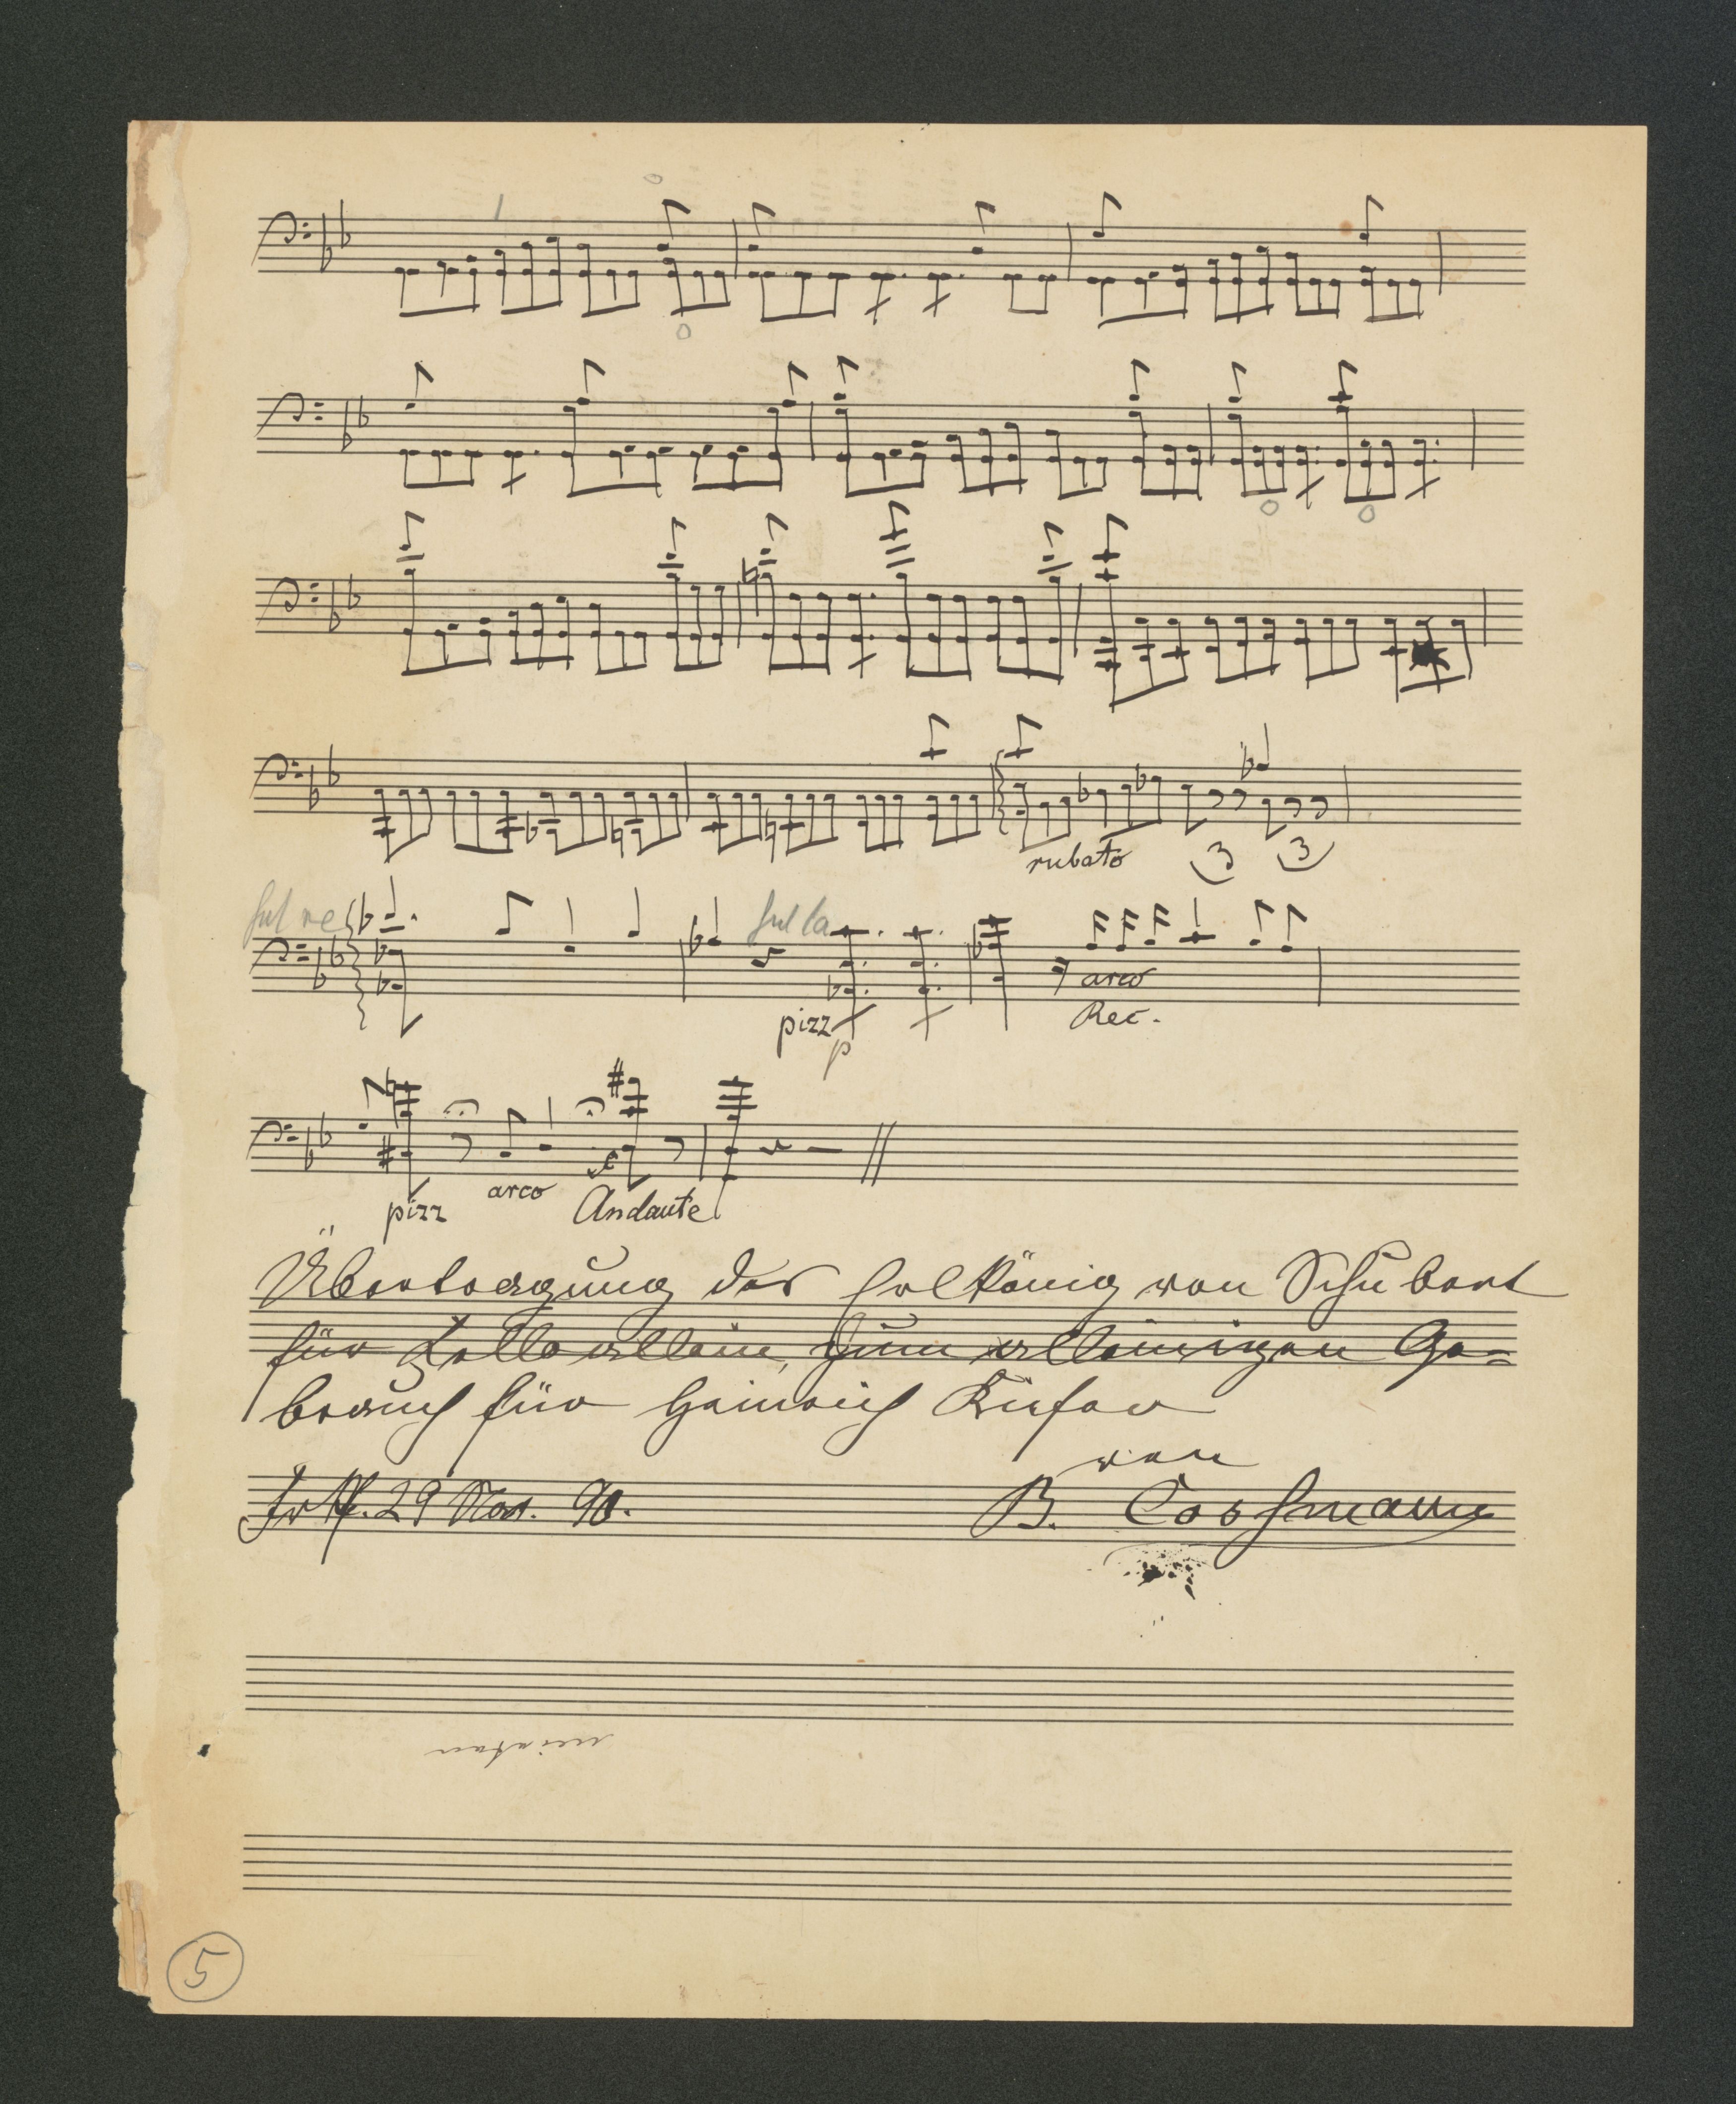 rubato
3 3
sul re sul la
pizz arco
p Rec.
pizz arco Andante
Übertragung des Erlkönig von Schubert
für Cello allein, zum alleinigen Ge=
brauch für Heinrich Kiefer
von
Frkf. 29 Nov. 90. B. Cossmann
5